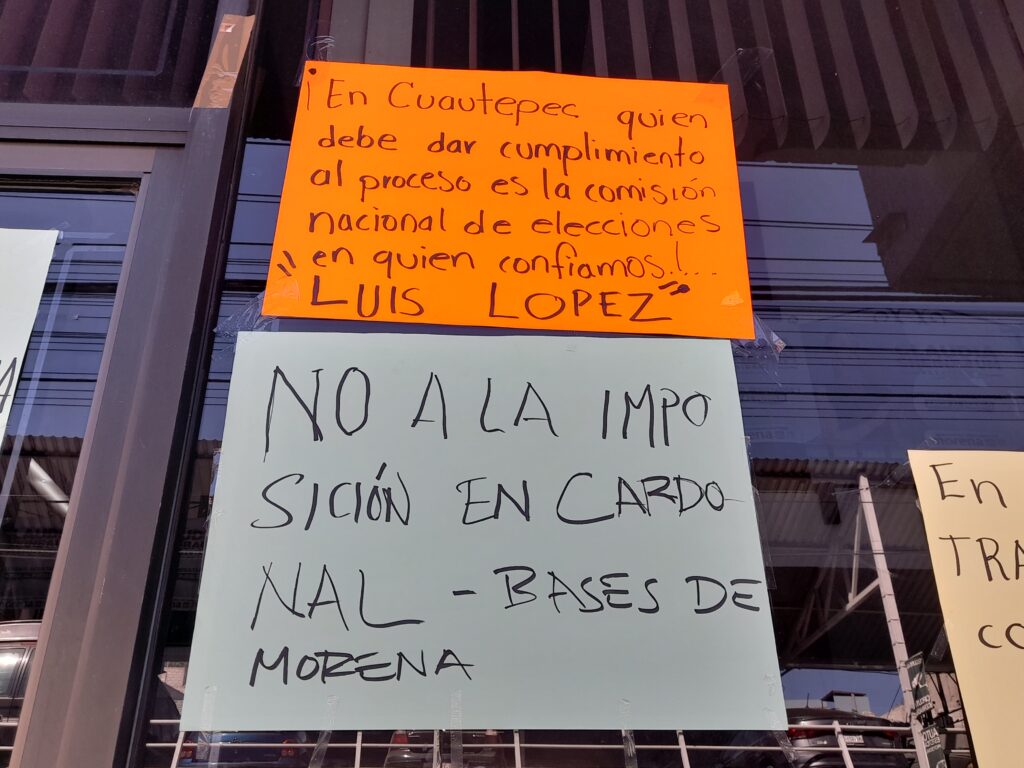 ¡En Cuautepec quien
debe dar cumplimiento
al proceso es la comisión
nacional de elecciones
en quien confiamos!...
"LUIS LOPEZ"
NO A LA IMPO
SICIÓN EN CARDO-
NAL - BASES DE
MORENA
En
TRA
CO